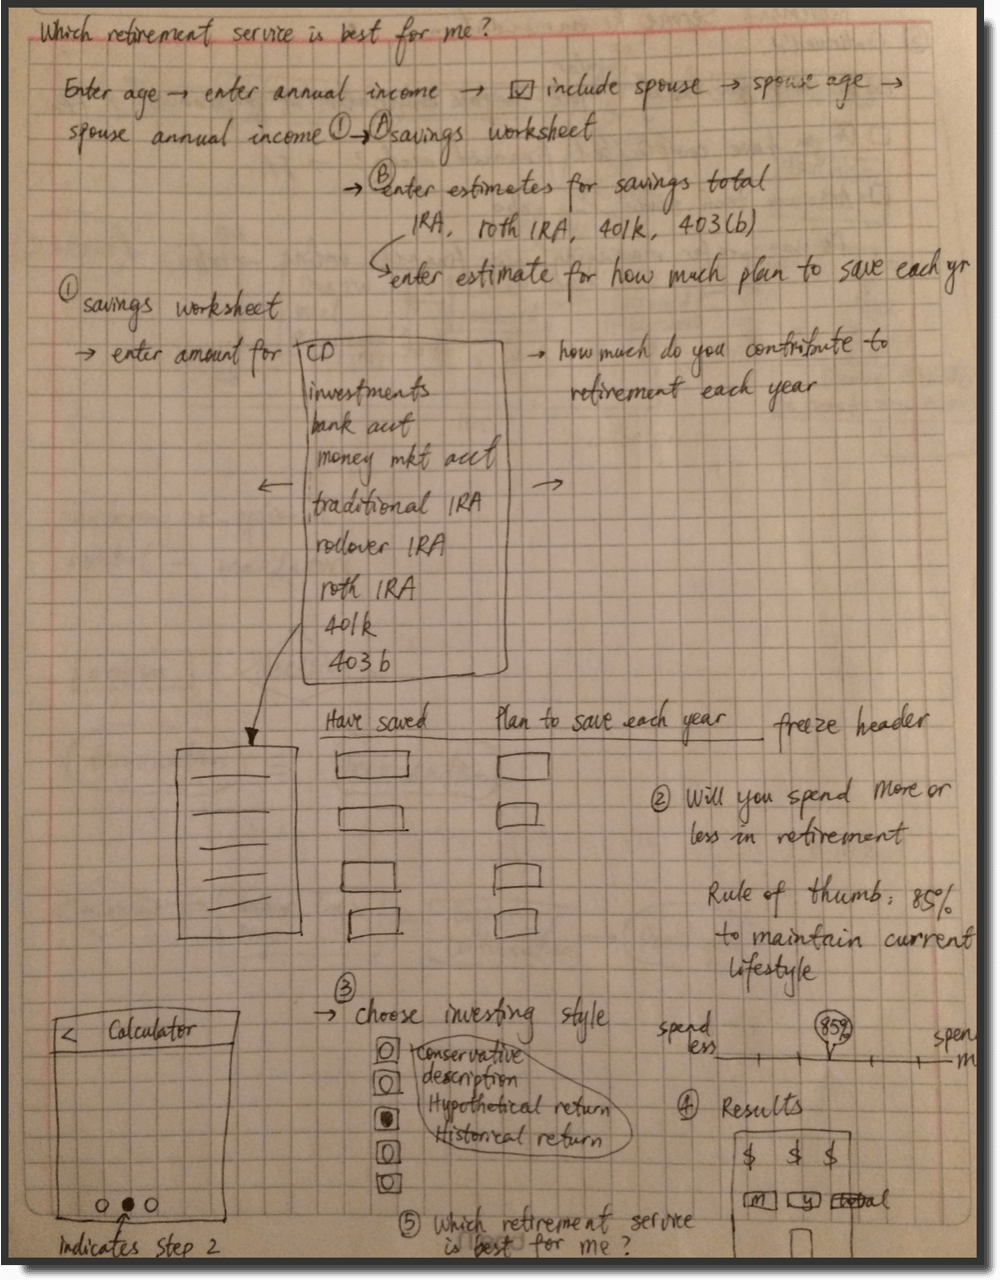 Which retirement service is best for me?
Enter age → enter annual income → ☑ include spouse → spouse age →
spouse annual income ① → Ⓐ savings worksheet
→ Ⓑ enter estimates for savings total
IRA, roth IRA, 401k, 403(b)
enter estimate for how much plan to save each yr
① savings worksheet
→ enter amount for
CD
investments
bank acct
money mkt acct
traditional IRA
rollover IRA
roth IRA
401k
403b
→ how much do you contribute to
retirement each year
Have saved
Plan to save each year
freeze header
② Will you spend more or
less in retirement
Rule of thumb: 85%
to maintain current
lifestyle
spend
less
85%
spen
m
③
→ choose investing style
conservative
description
Hypothetical return
Historical return
< Calculator
indicates step 2
④ Results
$ $ $
m y total
⑤ Which retirement service
is best for me?